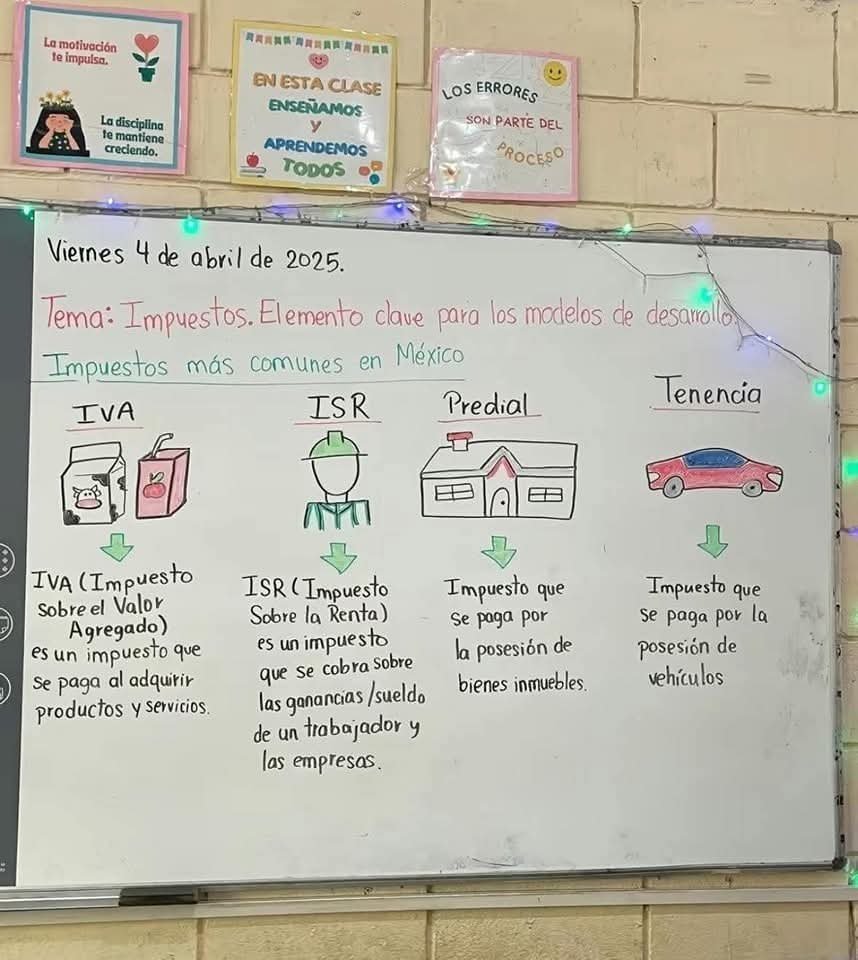 La motivación
te impulsa.
La disciplina
te mantiene
creciendo.
EN ESTA CLASE
ENSEÑAMOS
Y
APRENDEMOS
TODOS
LOS ERRORES
SON PARTE DEL
PROCESO
Viernes 4 de abril de 2025.
Tema: Impuestos. Elemento clave para los modelos de desarrollo.
Impuestos más comunes en México
IVA
IVA (Impuesto
sobre el Valor
Agregado)
es un impuesto que
se paga al adquirir
productos y servicios.
ISR
ISR (Impuesto
Sobre la Renta)
es un impuesto
que se cobra sobre
las ganancias/sueldo
de un trabajador y
las empresas.
Predial
Impuesto que
se paga por
la posesión de
bienes inmuebles.
Tenencia
Impuesto que
se paga por la
posesión de
vehículos